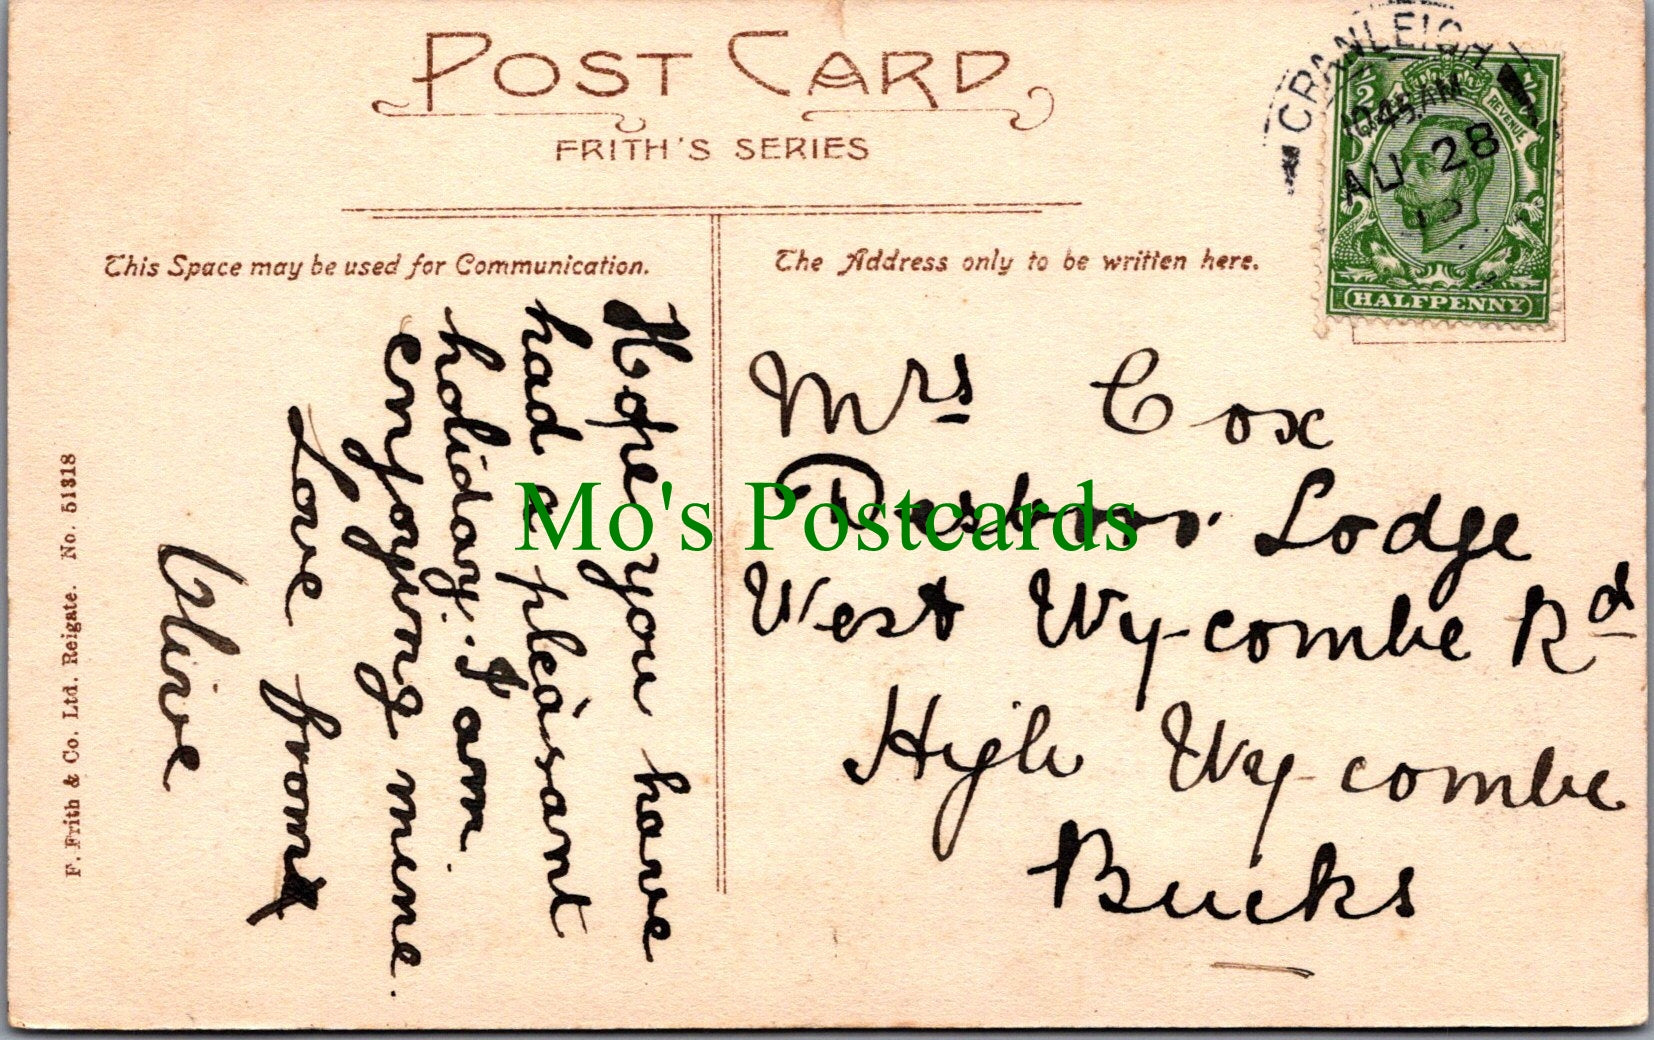 POST CARD
FRITH'S SERIES
This Space may be used for Communication.
The Address only to be written here.
CRANLEIGH
10.45 AM
AU 28
REVENUE
HALFPENNY
Hope you have
had a pleasant
holiday. I am
enjoying mine.
Love from
Olive
Mrs Cox
Lodge
West Wycombe Rd
High Wycombe
Bucks
F. Frith & Co. Ltd. Reigate. No. 51318
Mo's Postcards